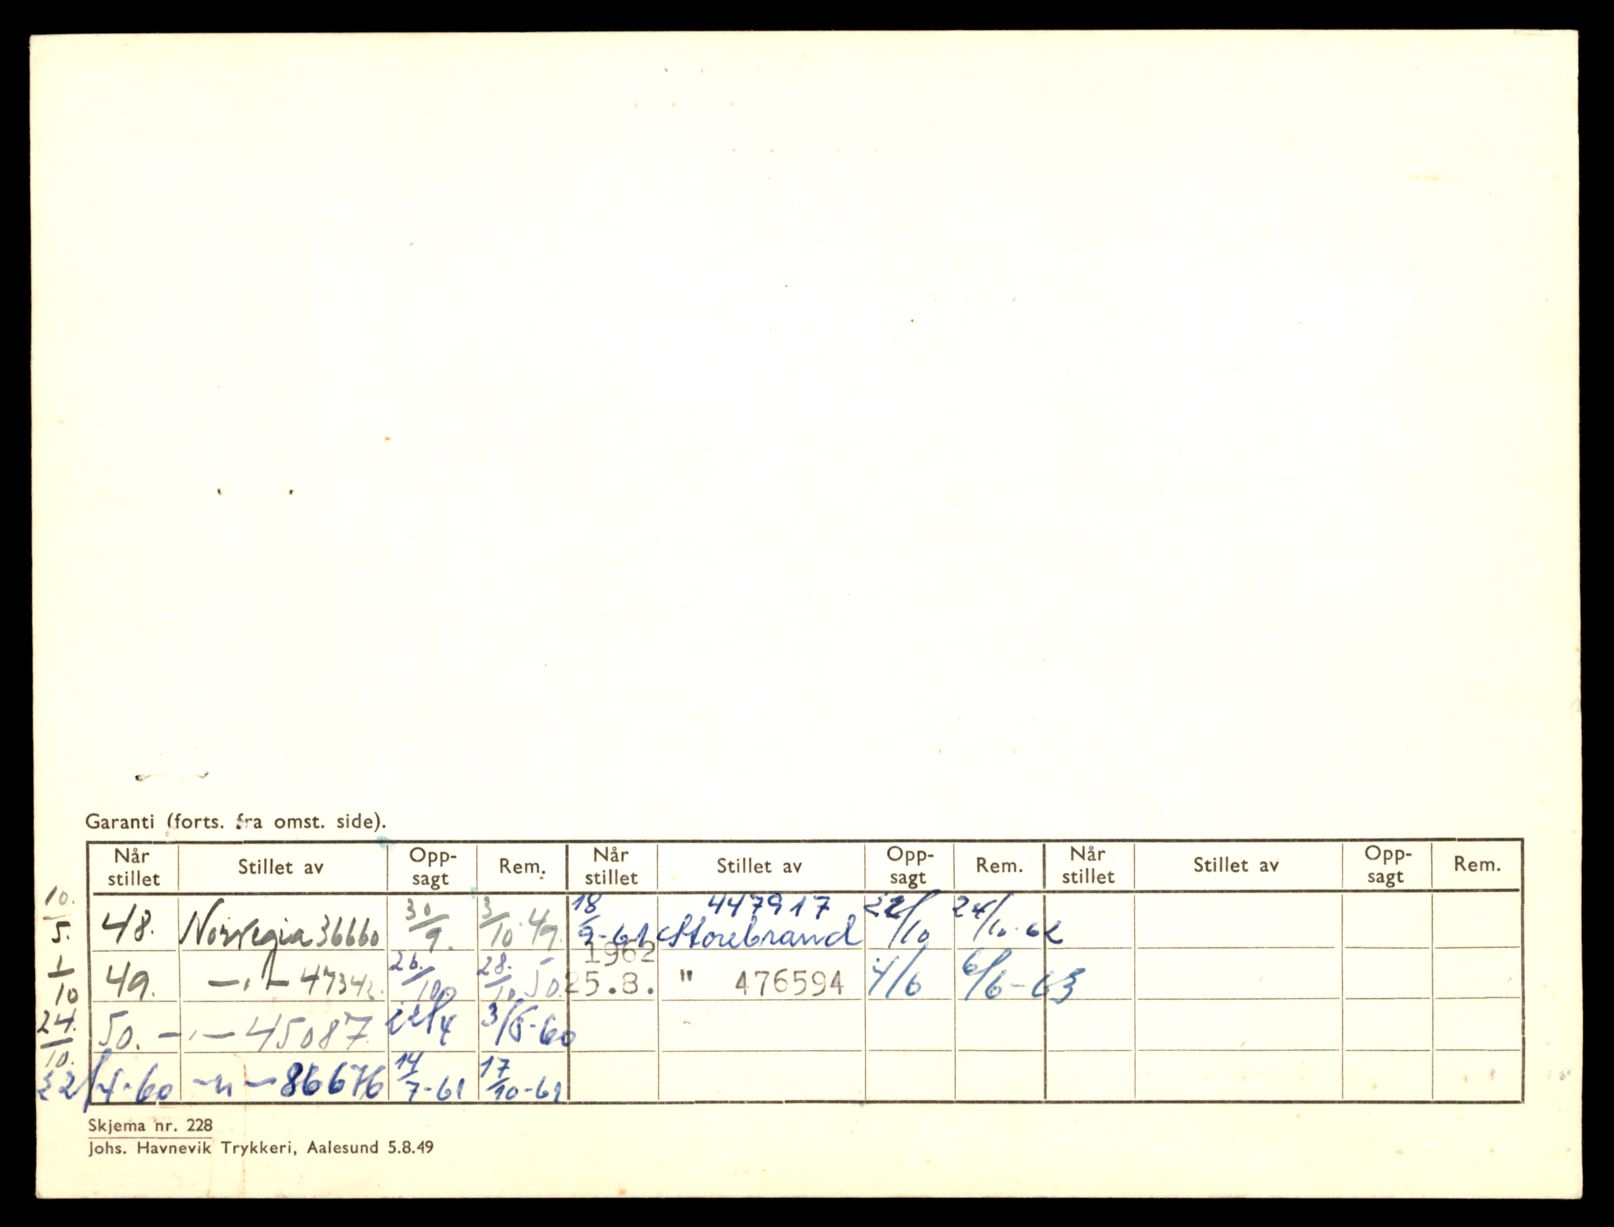 Garanti (forts. fra omst. side).
Når stillet | Stillet av | Opp-sagt | Rem. | Når stillet | Stillet av | Opp-sagt | Rem. | Når stillet | Stillet av | Opp-sagt | Rem.
10./5. 48. | Norvegia 36660 | 30/9. | 3/10-49. | 18/9-61 | 447917 Storebrand | 22/10 | 24/10-62
1/10 49. | —"— 47342 | 26./10 | 28./10 50. | 1962 25.8. | " 476594 | 4/6 | 6/6-63
24./10. 50. | —"— 45087. | 22/4 | 3/5-60
22/4-60 | —"— 86676 | 14/7-61 | 17/10-61
Skjema nr. 228
Johs. Havnevik Trykkeri, Aalesund 5.8.49